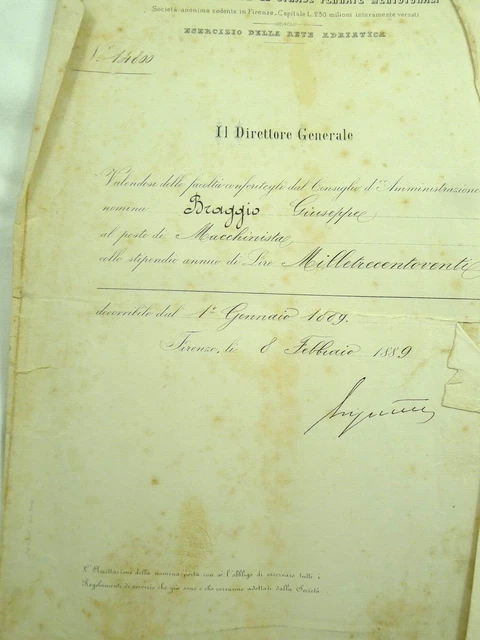 STRADE FERRATE MERIDIONALI
Società anonima sedente in Firenze-Capitale L. 230 milioni interamente versati
ESERCIZIO DELLA RETE ADRIATICA
Il Direttore Generale
Valendosi della facoltà conferitagli dal Consiglio d'Amministrazione
nomina Braggio Giuseppe
al posto di Macchinista
collo stipendio annuo di Lire Milletrecentoventi
decorribile dal 1° Gennaio 1889.
Firenze, li 8 Febbraio 1889
L'Accettazione della nomina porta con sè l'obbligo di osservare tutti i
Regolamenti di servizio che già sono e che verranno adottati dalla Società